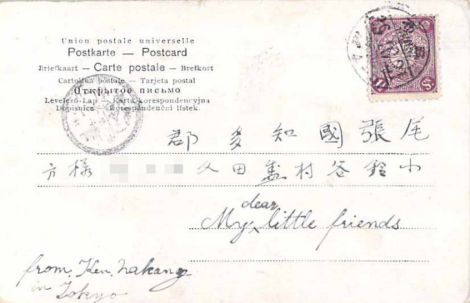 Union postale universelle
Postkarte — Postcard
Briefkaart — Carte postale — Brefkort
Cartolina postale — Tarjeta postal
Открытое письмо
Levelező-Lap — Karta korespondencyjna
Dopisnice — Korespondenční lístek.
尾張國知多郡
小鈴谷村盛田久 様方
My dear little friends
from Ken, Nakano
in Tokyo